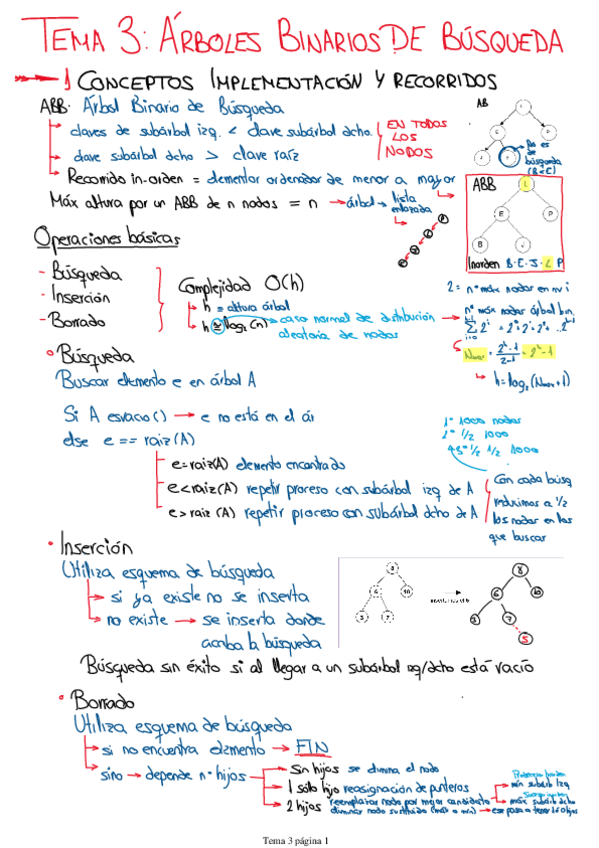 TEMA 3: ÁRBOLES BINARIOS DE BÚSQUEDA
1 CONCEPTOS IMPLEMENTACIÓN Y RECORRIDOS
ABB: Árbol Binario de Búsqueda
claves de subárbol izq. < clave subárbol dcho.
clave subárbol dcho > clave raíz
EN TODOS
LOS
NODOS
Recorrido in-orden = elementos ordenados de menor a mayor
Máx altura por un ABB de n nodos = n → árbol → lista
enlazada
AB
No es
de
búsqueda
ABB
L
E
P
B
J
Inorden B·E·J·L P
Operaciones básicas
- Búsqueda
- Inserción
- Borrado
Complejidad O(h)
h = altura árbol
h ≅ log₂(n) → caso normal de distribución
aleatoria de nodos
nº máx nodos en niv i
nº máx nodos árbol bin
h = log₂(Nmax+1)
Búsqueda
Buscar elemento e en árbol A
Si A esvacio() → e no está en el ár
else e == raiz(A)
e=raiz(A) elemento encontrado
e<raiz(A) repetir proceso con subárbol izq de A
e>raiz(A) repetir proceso con subárbol dcho de A
1º 1000 nodos
2º 1/2 1000
1/2 1/2 1000
Con cada búsq
reducimos a 1/2
los nodos en los
que buscar
Inserción
Utiliza esquema de búsqueda
si ya existe no se inserta
no existe → se inserta donde
acaba la búsqueda
8
6
10
3
7
8
6
10
3
7
5
Búsqueda sin éxito si al llegar a un subárbol izq/dcho está vacío
Borrado
Utiliza esquema de búsqueda
si no encuentra elemento → FIN
sino → depende nº hijos
Sin hijos se elimina el nodo
1 sólo hijo reasignación de punteros
2 hijos reemplazar nodo por mejor candidato
eliminar nodo sustituido (máx o mín)
máx subárb dcho
Tema 3 página 1